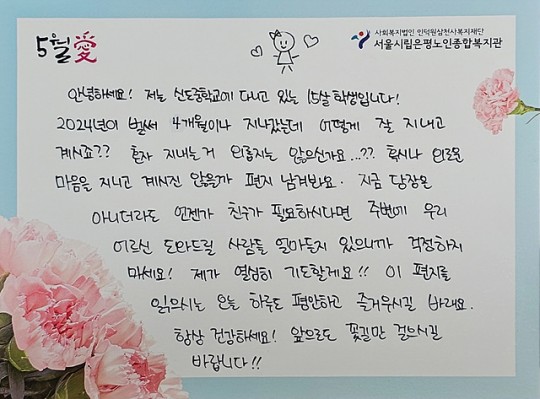 5월 愛
사회복지법인 인덕원삼천사복지재단
서울시립은평노인종합복지관
안녕하세요! 저는 신도중학교에 다니고 있는 15살 학생입니다!
2024년이 벌써 4개월이나 지나갔는데 어떻게 잘 지내고
계시죠?? 혼자 지내는거 외롭지는 않으신가요...?? 혹시나 외로운
마음을 지니고 계시진 않을까 편지 남겨봐요. 지금 당장은
아니더라도 언젠가 친구가 필요하시다면 주변에 우리
어르신 도와드릴 사람들 얼마든지 있으니까 걱정하지
마세요! 제가 열심히 기도할게요!! 이 편지를
읽으시는 오늘 하루도 평안하고 즐거우시길 바래요.
항상 건강하세요! 앞으로도 꽃길만 걸으시길
바랍니다!!